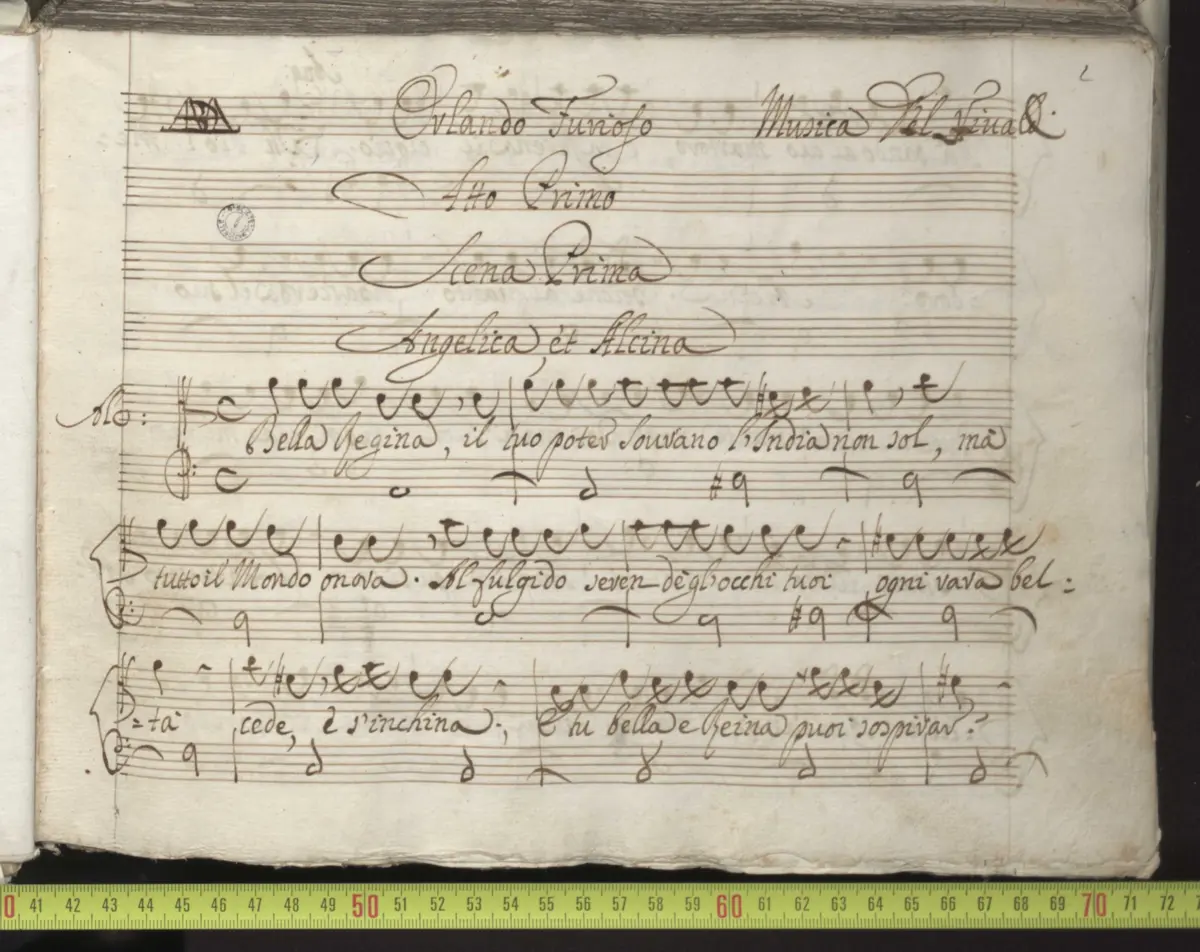 2
Orlando Furioso Musica Del Vivaldi
Atto Primo
Scena Prima
Angelica, et Alcina
Alc:
Bella Regina, il tuo poter sovrano l'India non sol, mà
tutto il Mondo onora. Al fulgido seren dègl'occhi tuoi ogni rara bel:
=tà cede, è s'inchina.; E tu bella e Reina puoi sospirar?
0 41 42 43 44 45 46 47 48 49 50 51 52 53 54 55 56 57 58 59 60 61 62 63 64 65 66 67 68 69 70 71 72 7